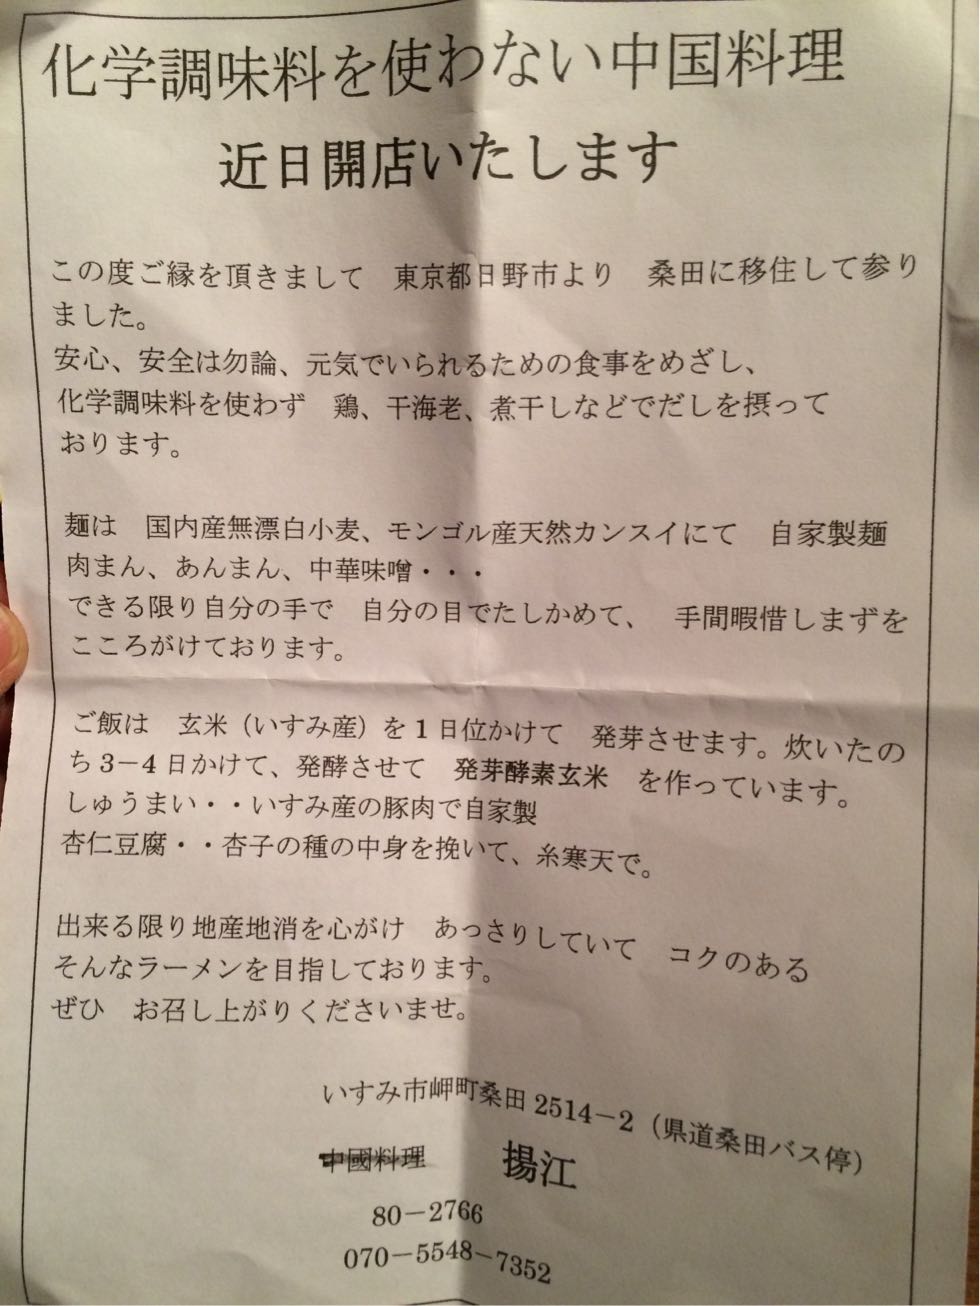 化学調味料を使わない中国料理
近日開店いたします
この度ご縁を頂きまして　東京都日野市より　桑田に移住して参り
ました。
安心、安全は勿論、元気でいられるための食事をめざし、
化学調味料を使わず　鶏、干海老、煮干しなどでだしを摂って
おります。
麺は　国内産無漂白小麦、モンゴル産天然カンスイにて　自家製麺
肉まん、あんまん、中華味噌・・・
できる限り自分の手で　自分の目でたしかめて、　手間暇惜しまずを
こころがけております。
ご飯は　玄米（いすみ産）を1日位かけて　発芽させます。炊いたの
ち3－4日かけて、発酵させて　発芽酵素玄米　を作っています。
しゅうまい・・いすみ産の豚肉で自家製
杏仁豆腐・・杏子の種の中身を挽いて、糸寒天で。
出来る限り地産地消を心がけ　あっさりしていて　コクのある
そんなラーメンを目指しております。
ぜひ　お召し上がりくださいませ。
いすみ市岬町桑田2514－2（県道桑田バス停）
中國料理　揚江
80－2766
070－5548－7352